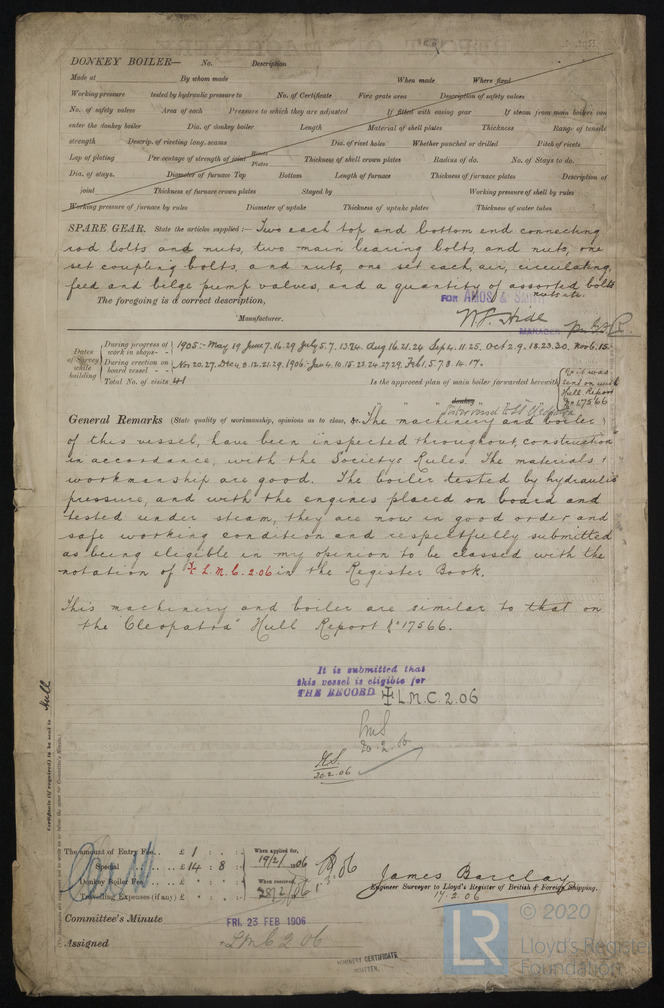 DONKEY BOILER— No. Description
Made at By whom made When made Where fixed
Working pressure tested by hydraulic pressure to No. of Certificate Fire grate area Description of safety valves
No. of safety valves Area of each Pressure to which they are adjusted If fitted with easing gear If steam from main boilers can
enter the donkey boiler Dia. of donkey boiler Length Material of shell plates Thickness Range of tensile
strength Descrip. of riveting long. seams Dia. of rivet holes Whether punched or drilled Pitch of rivets
Lap of plating Per centage of strength of joint Rivets Plates Thickness of shell crown plates Radius of do. No. of Stays to do.
Dia. of stays. Diameter of furnace Top Bottom Length of furnace Thickness of furnace plates Description of
joint Thickness of furnace crown plates Stayed by Working pressure of shell by rules
Working pressure of furnace by rules Diameter of uptake Thickness of uptake plates Thickness of water tubes
SPARE GEAR. State the articles supplied:— Two each top and bottom end connecting
rod bolts and nuts, two main bearing bolts, and nuts, one
set coupling bolts, and nuts, one set each, air, circulating,
feed and bilge pump valves, and a quantity of assorted bolts
nuts etc.
The foregoing is a correct description,
FOR AMOS & SMITH
Manufacturer.
MANAGER
Dates of Survey while building
During progress of work in shops - - 1905:- May 19 June 7. 16. 29 July 5. 7. 13. 24. Aug 16. 21. 24 Sept 4. 11. 25, Oct 2. 9. 18. 23. 30. Nov 6. 15.
During erection on board vessel - - - Nov 20. 27. Dec 4. 8. 12. 21. 29. 1906: Jan 4. 10. 15. 23. 24. 27. 29. Feb 1. 5. 7. 8. 14. 17.
Total No. of visits 41
Is the approved plan of main boiler forwarded herewith
No it was
sent on with
Hull Report
No 17566
" " " donkey " " "
General Remarks (State quality of workmanship, opinions as to class, &c. The machinery and boiler
of this vessel, have been inspected throughout construction
in accordance, with the Societys Rules. The materials &
workmanship are good. The boiler tested by hydraulic
pressure, and with the engines placed on board and
tested under steam, they are now in good order and
safe working condition and respectfully submitted
as being eligible in my opinion to be classed with the
notation of ✠ L.M.C. 2.06 in the Register Book.
This machinery and boiler are similar to that on
the "Cleopatra" Hull Report No 17566.
It is submitted that
this vessel is eligible for
THE RECORD ✠ L.M.C. 2.06
20.2.06
H.S.
20.2.06
Certificate (if required) to be sent to Hull
The amount of Entry Fee . . £ 1 : : When applied for,
Special . . £ 14 : 8 : 19/2/1906
Donkey Boiler Fee . . £ : : When received,
Travelling Expenses (if any) £ : : 28/2/06
James Barclay
Engineer Surveyor to Lloyd's Register of British & Foreign Shipping.
17.2.06
Committee's Minute FRI. 23 FEB 1906
Assigned + LMC 2.06
MACHINERY CERTIFICATE
WRITTEN.
© 2020
LR
Lloyd's Register
Foundation